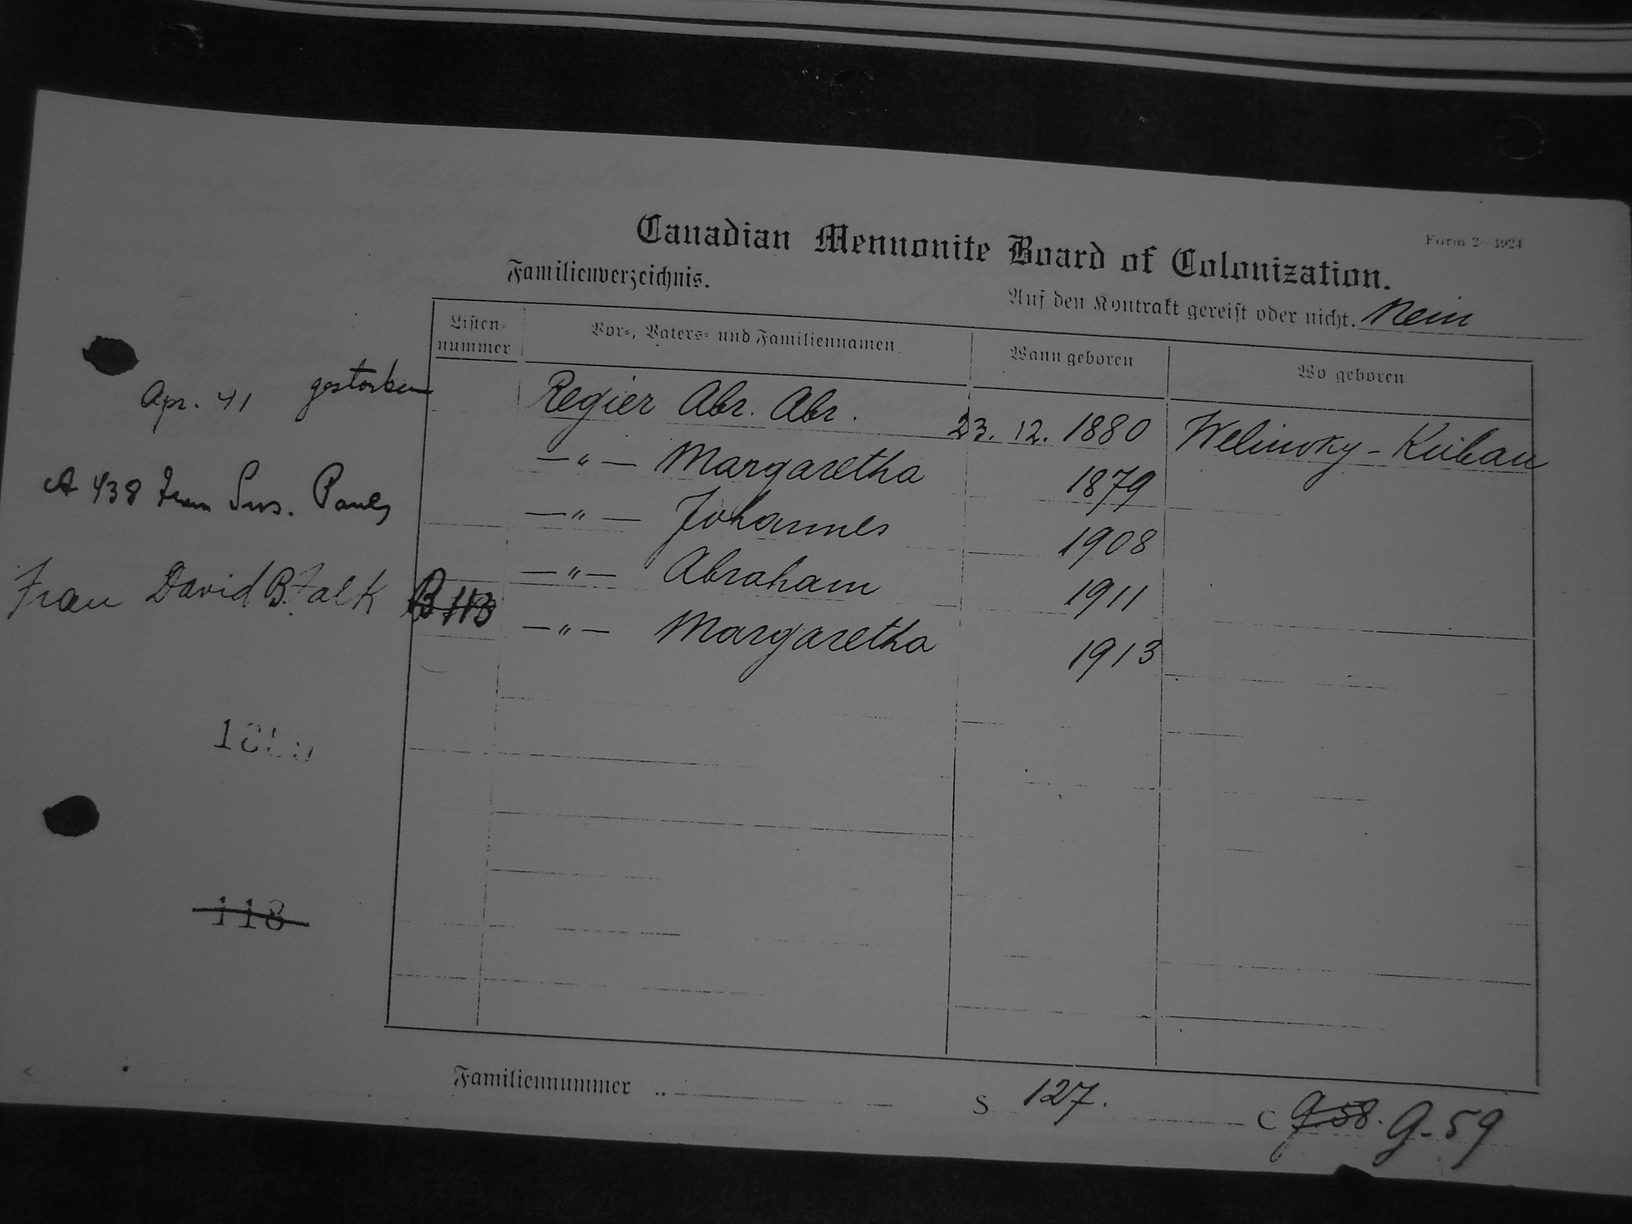 Canadian Mennonite Board of Colonization.
Form 2—1924
Familienverzeichnis.
Auf den Kontrakt gereist oder nicht. Nein
Listen-
nummer
Vor-, Vaters- und Familiennamen.
Wann geboren
Wo geboren
Apr. 41 gestorben
Regier Abr. Abr. 23. 12. 1880
—"— Margaretha 1879
A 438 Frau Sus. Pauls
—"— Johannes 1908
—"— Abraham 1911
Frau David B. Falk B 113
—"— Margaretha 1913
118
Familiennummer
S 127.
C G-58. G-59